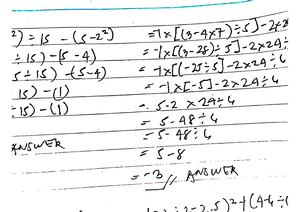 ²) ÷ 15 - (5-2²)
÷ 15) - (5 - 4)
5 ÷ 15) - (5-4)
15) - (1)
÷15) - (1)
ANSWER
= 1 x [(3-4x7) ÷ 5] - 2x2
= -1 x [(3-28) ÷ 5] - 2x24 ÷
= -1x [(-25 ÷ 5] - 2x24 ÷ 6
= -1x [-5] - 2x24 ÷ 6
= 5-2 x 24 ÷ 6
= 5 - 48 ÷ 6
= 5 - 48 ÷ 6
= 5-8
= -3 // ANSWER